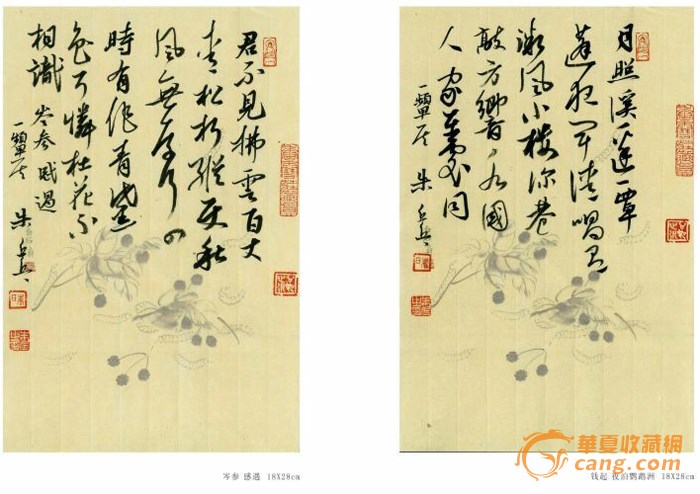 君不見拂雲百丈
青松柯縱使秋
風無奈何四
時作青黛
色可憐杜花不
相識 岑參 感遇
月照溪邊一罩
蓬夜聞清唱有
微風小樓深巷
敲方響水國
人家處處同
岑参 感遇 18X28cm
钱起 夜泊鹦鹉洲 18X28cm
華夏收藏網
cang.com